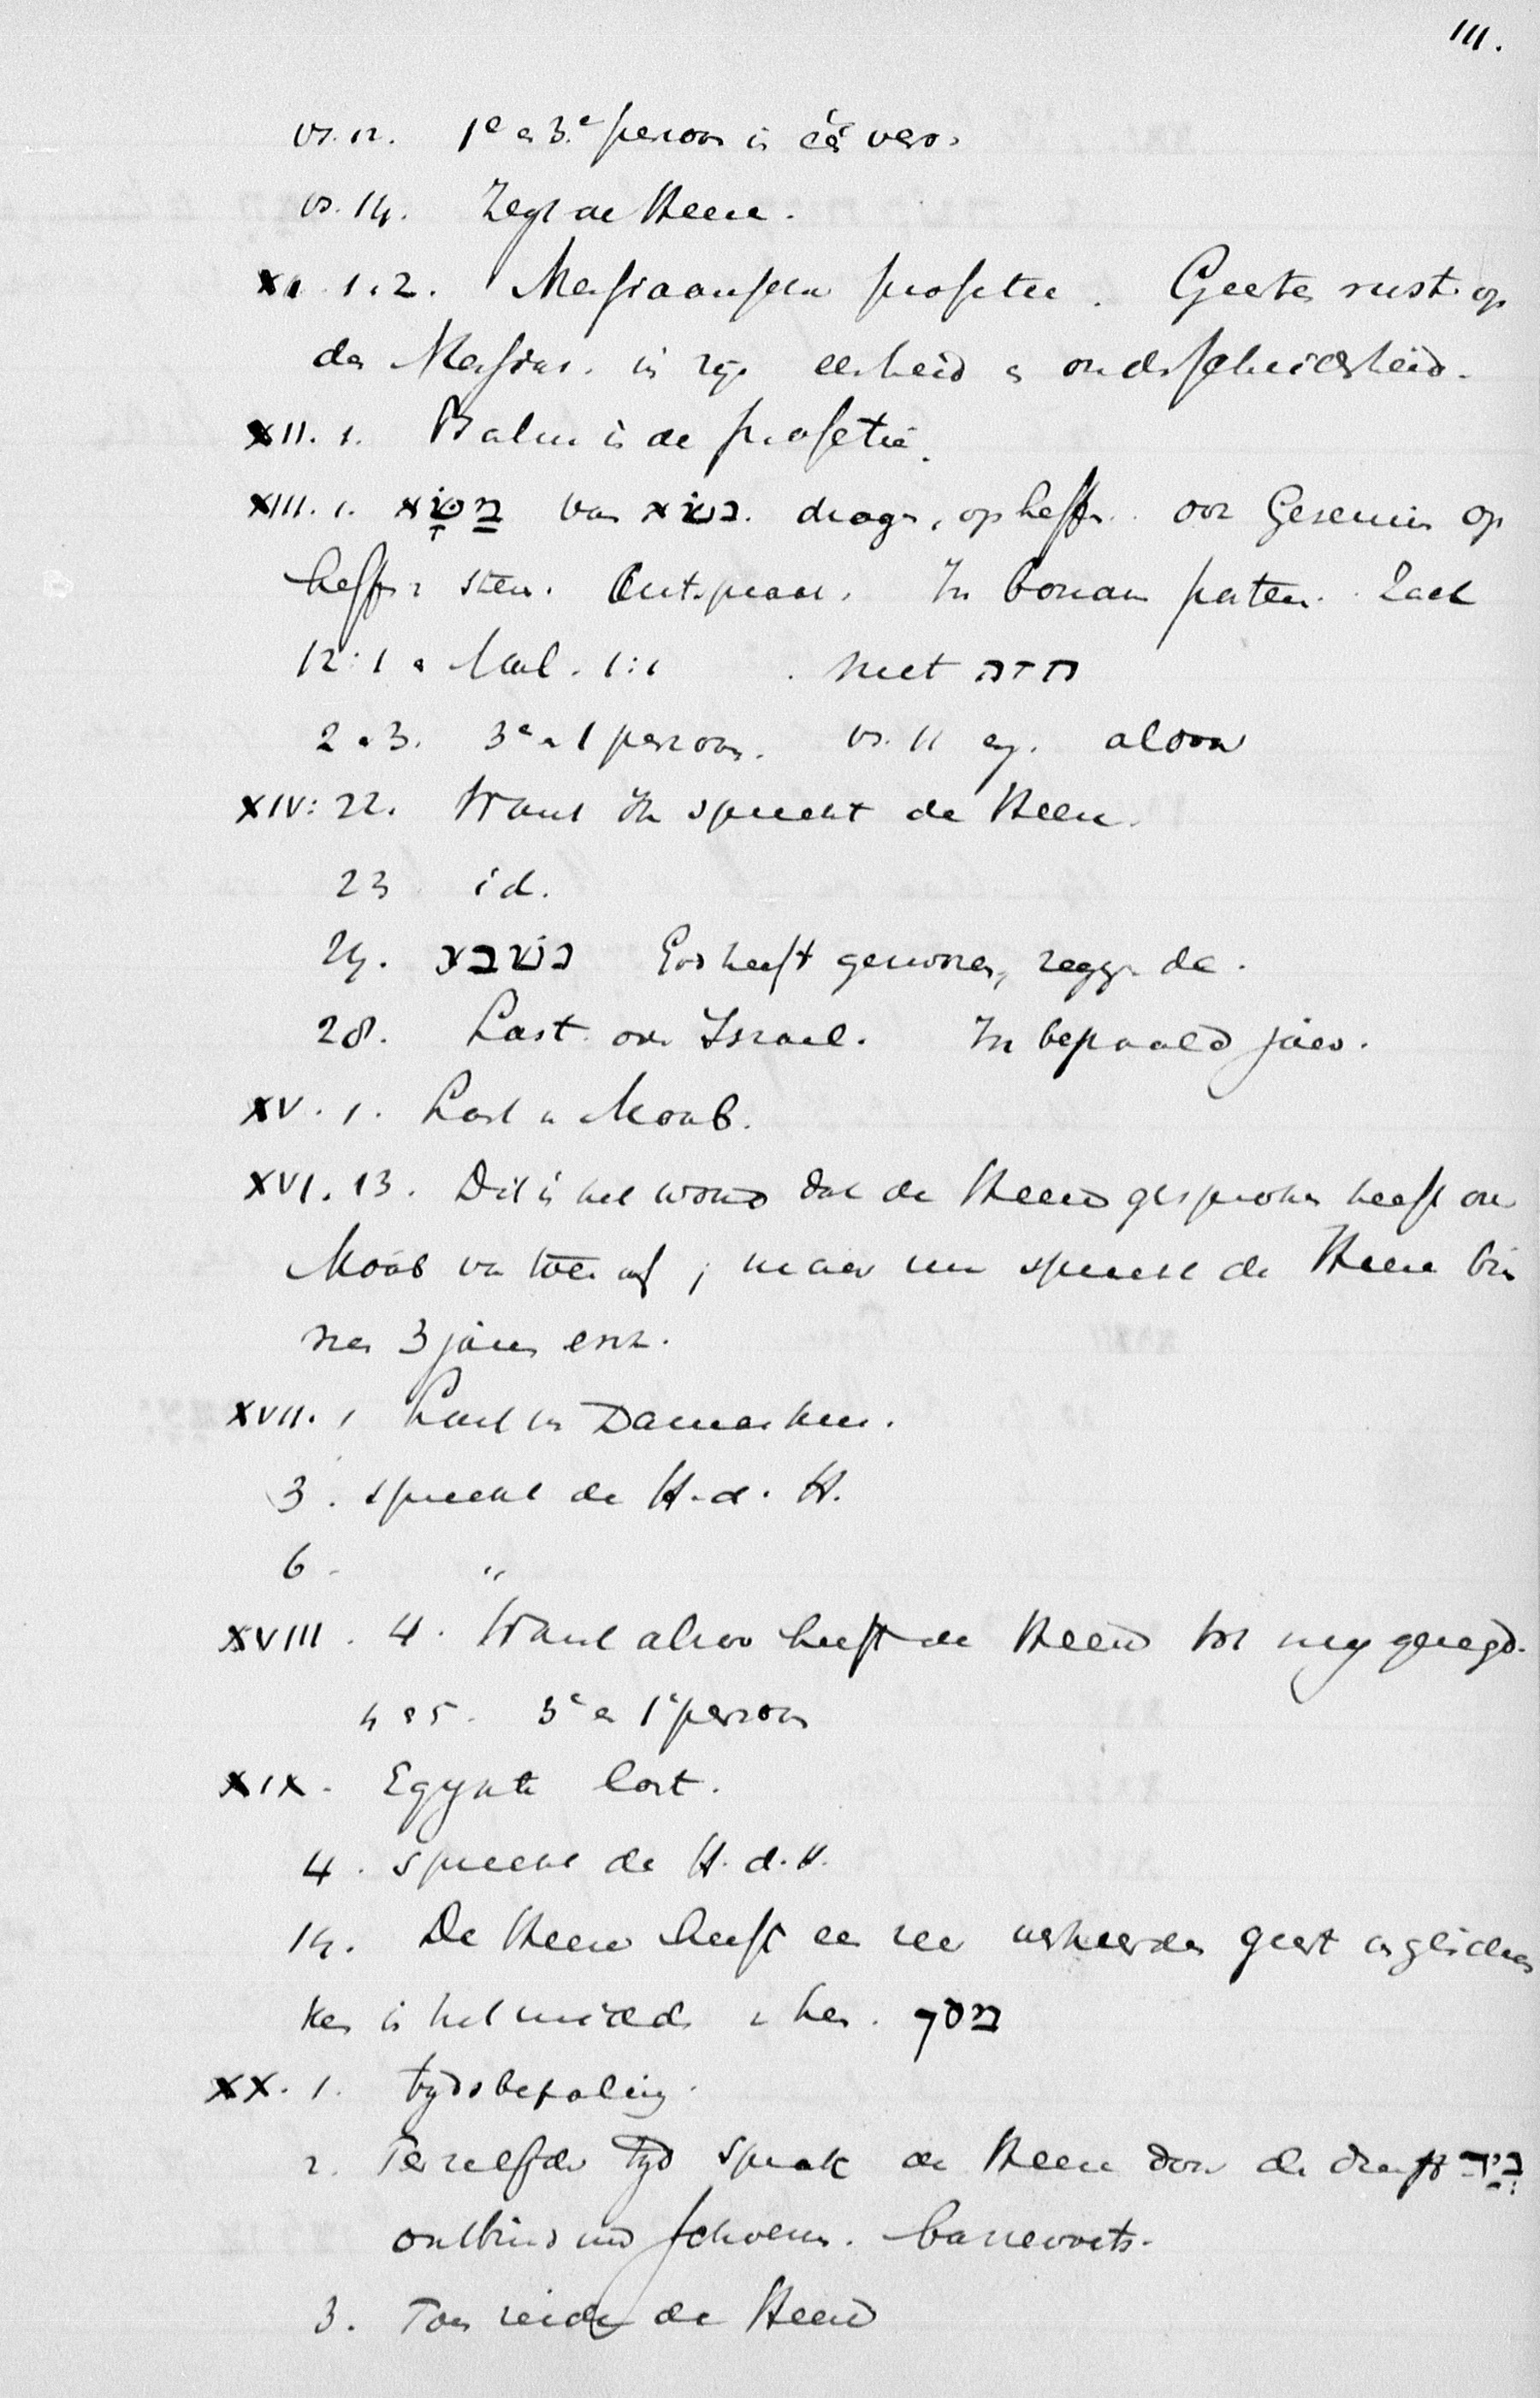 111.
vs. 12. 1e en 3e persoon in één vers.
vs. 14. Zegt de Heere.
XI. 1. 2. Messiaansche profetie. Geest rust op
den Messias. in zijn eenheid en onderscheidenheid.
XII. 1. Psalm in de profetie.
XIII. 1. מַשָּׂא van נשׂא. dragen, opheffen. Gesenius op
heffen stem. Uitspraak. In bonam partem. Zach
12:1 en Mal. 1:1 . niet חזה
2 en 3. 3e en 1 persoon. vs. 11 alsook
XIV: 22. Want Ik spreekt de Heere.
23 id.
24. נשׁבע God heeft gezworen, zeggende.
28. Last over Israel. In bepaald jaar.
XV. 1. Last v Moab.
XVI. 13. Dit is het woord dat de Heere gesproken heeft over
Moab van toen af; maar nu spreekt de Heere bin
nen 3 jaren enz.
XVII. 1 Last van Damaskus.
3. spreekt de H. d. H.
6. "
XVIII. 4. Want alzoo heeft de Heere tot mij gezegd.
4 en 5. 3e en 1e persoon
XIX. Egypte last.
4. spreekt de H. d. H.
14. De Heere heeft een zeer verkeerden geest ingeschon
ken in het midden v hen. מסך
XX. 1. tijdsbepaling.
2. Terzelfder tijd sprak de Heere door den dienst בְּיַד
ontbind uw schoenen. barrevoets.
3. Toen zeide de Heere